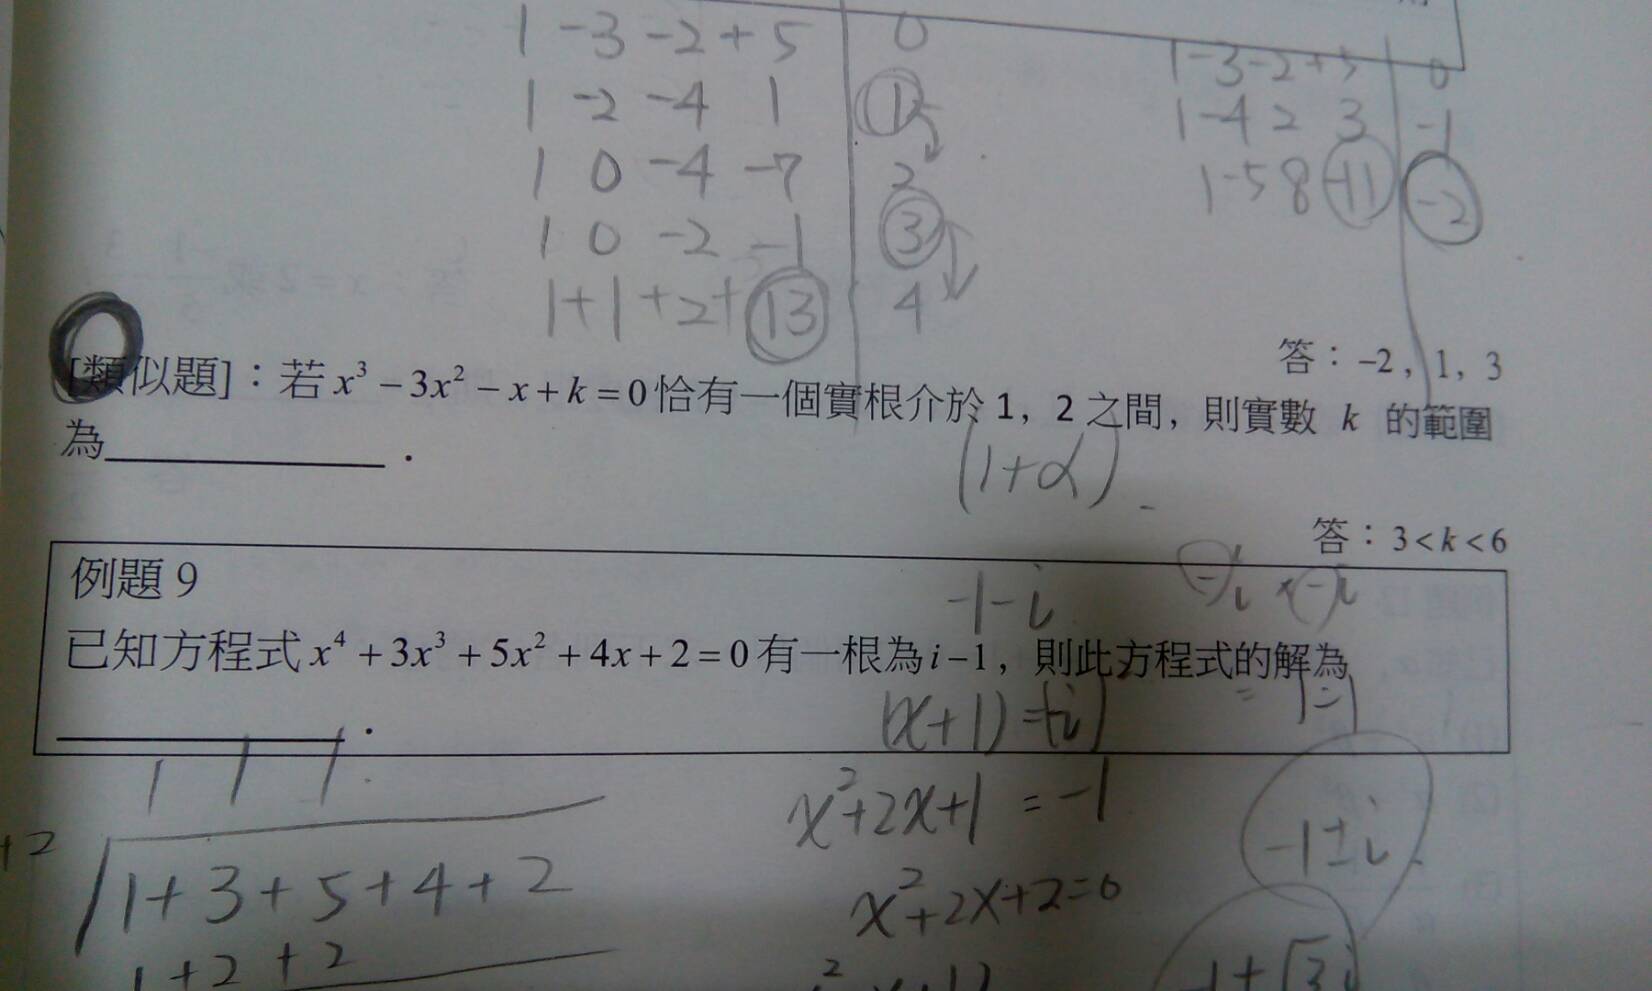 1 -3 -2 + 5 0
1 -2 -4 1 1
1 0 -4 -7 2
1 0 -2 -1 3
1+1+2+13 4
1-3-2+5 0
1-4 2 3 -1
1-5 8 -11 -2
答：-2，1，3
[類似題]：若 x³ − 3x² − x + k = 0 恰有一個實根介於 1，2 之間，則實數 k 的範圍
為____________．
(1+α)
答：3 < k < 6
例題 9
-1-i
-i × -i
已知方程式 x⁴ + 3x³ + 5x² + 4x + 2 = 0 有一根為 i − 1，則此方程式的解為
____________．
(x+1) =
1 1 1
x²+2x+1 = -1
-1±i
+2
1+3+5+4+2
x²+2x+2=0
1+2+2